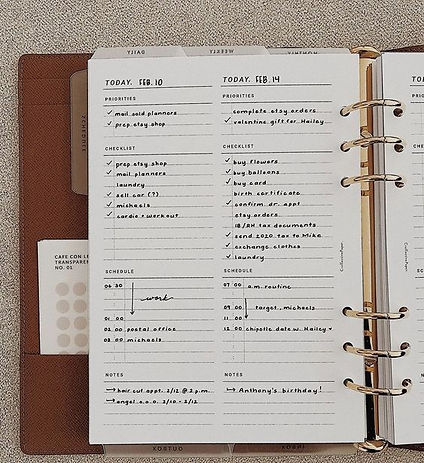 DAILY
WEEKLY
MONTHLY
TODAY. FEB. 10
PRIORITIES
✓ mail sold planners
✓ prep etsy shop
CHECKLIST
✓ prep etsy shop
✓ mail planners
laundry
✓ sell car (?)
✓ michaels
✓ cardio + workout
SCHEDULE
06 30
work
01 00
02 00 postal office
03 00 michaels
NOTES
→ hair cut appt. 2/12 @ 2 p.m.
→ angel o.o.o. 2/10 - 2/12
TODAY. FEB. 14
PRIORITIES
complete etsy orders
✓ valentine gift for Hailey
CHECKLIST
✓ buy flowers
✓ buy balloons
✓ buy card
birth certificate
✓ confirm dr. appt
etsy orders
tax documents
✓ send 2020 tax to Mike
✓ exchange clothes
✓ laundry
SCHEDULE
07 00 a.m. routine
09 00 target, michaels
11 00
12 00 chipotle date w. Hailey ♥
NOTES
→ Anthony's birthday!
CAFE CON LE
TRANSPARE
NO. 01
TOD
PRIOR
CHEC
SCHE
NOTE